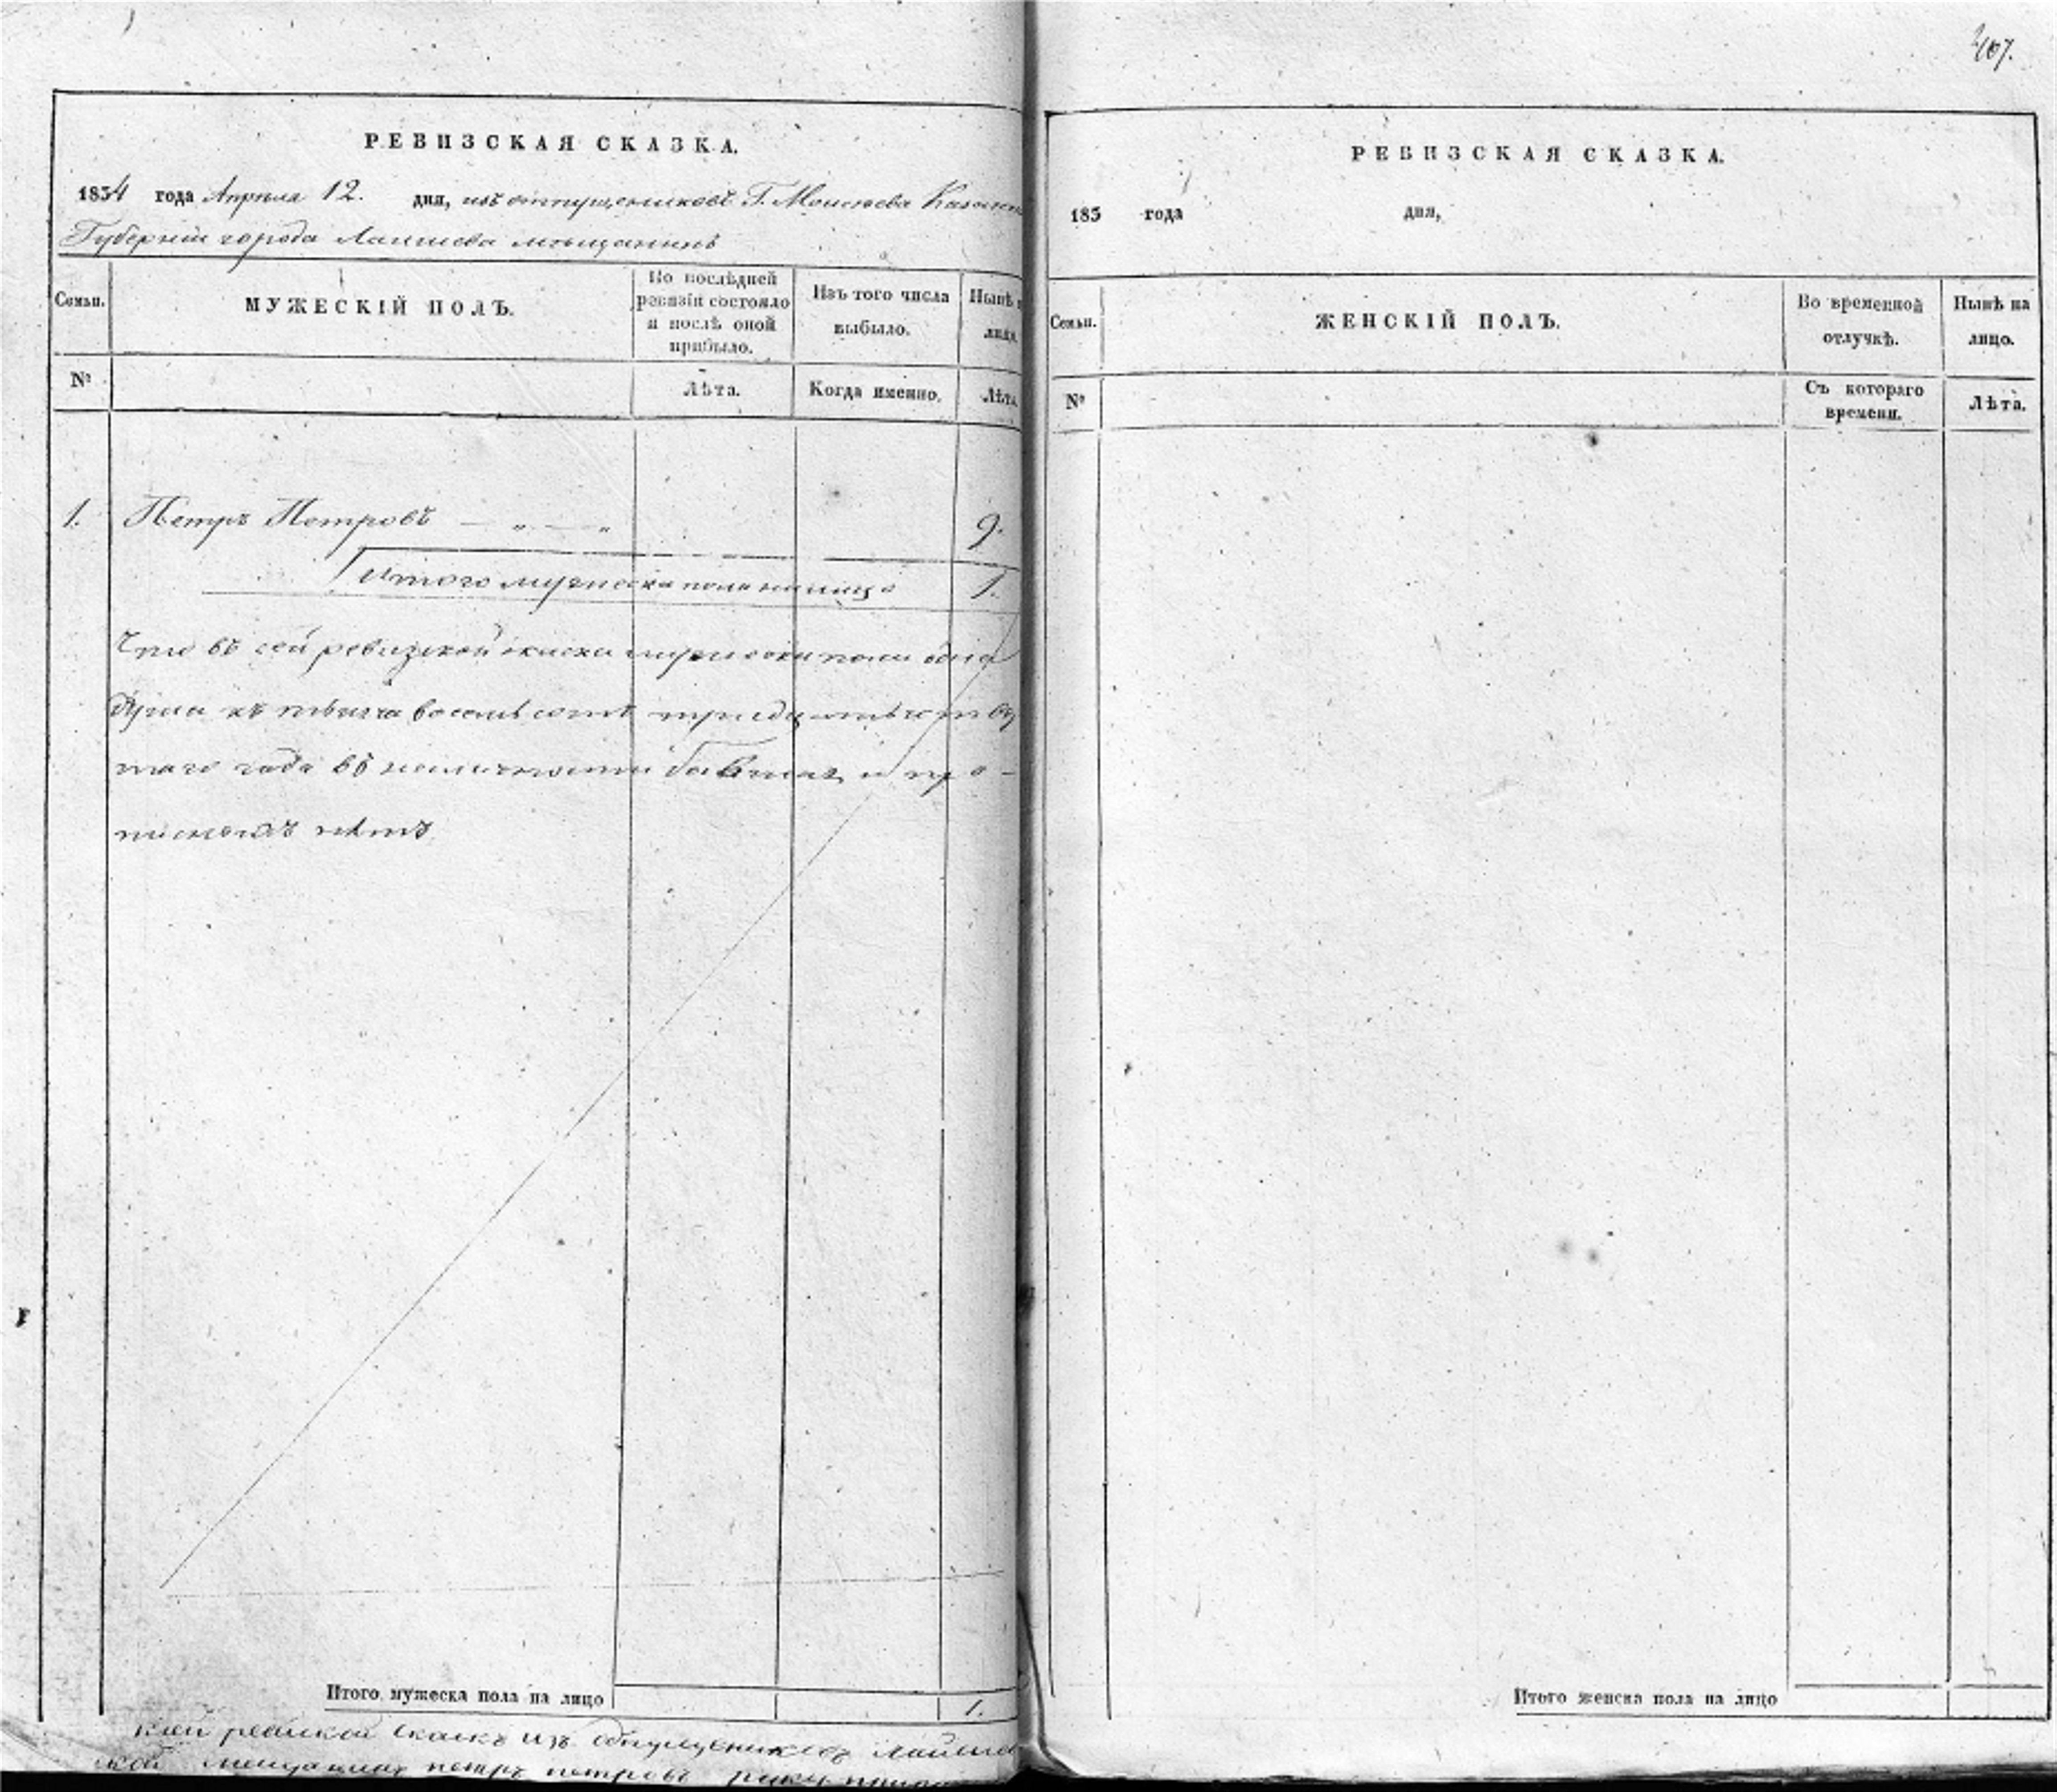 407.
РЕВИЗСКАЯ СКАЗКА.
1834 года Апреля 12. дня, изъ отпущенниковъ Г. Моисеева Казанс
Губернiи города Лаишева мѣщанинъ
Семьи. МУЖЕСКІЙ ПОЛЪ. По послѣдней ревизіи состояло и послѣ оной прибыло. Изъ того числа выбыло. Нынѣ лицо.
№ Лѣта. Когда именно. Лѣта.
1. Петръ Петровъ — „ — „ 9.
Итого мужеска пола налицо 1.
Что въ сей ревизской скаски мужеска пола одна
душа къ тысяча восемь сотъ тридцать четвер
таго года въ наличности и про-
писныхъ нѣтъ
Итого мужеска пола на лицо 1.
кой ской скаскѣ изъ Лаишев
ской мещанинъ петръ петровъ руку
РЕВИЗСКАЯ СКАЗКА.
183 года дня,
Семьи. ЖЕНСКІЙ ПОЛЪ. Во временной отлучкѣ. Нынѣ на лицо.
№ Съ котораго времени. Лѣта.
Итого женска пола на лицо